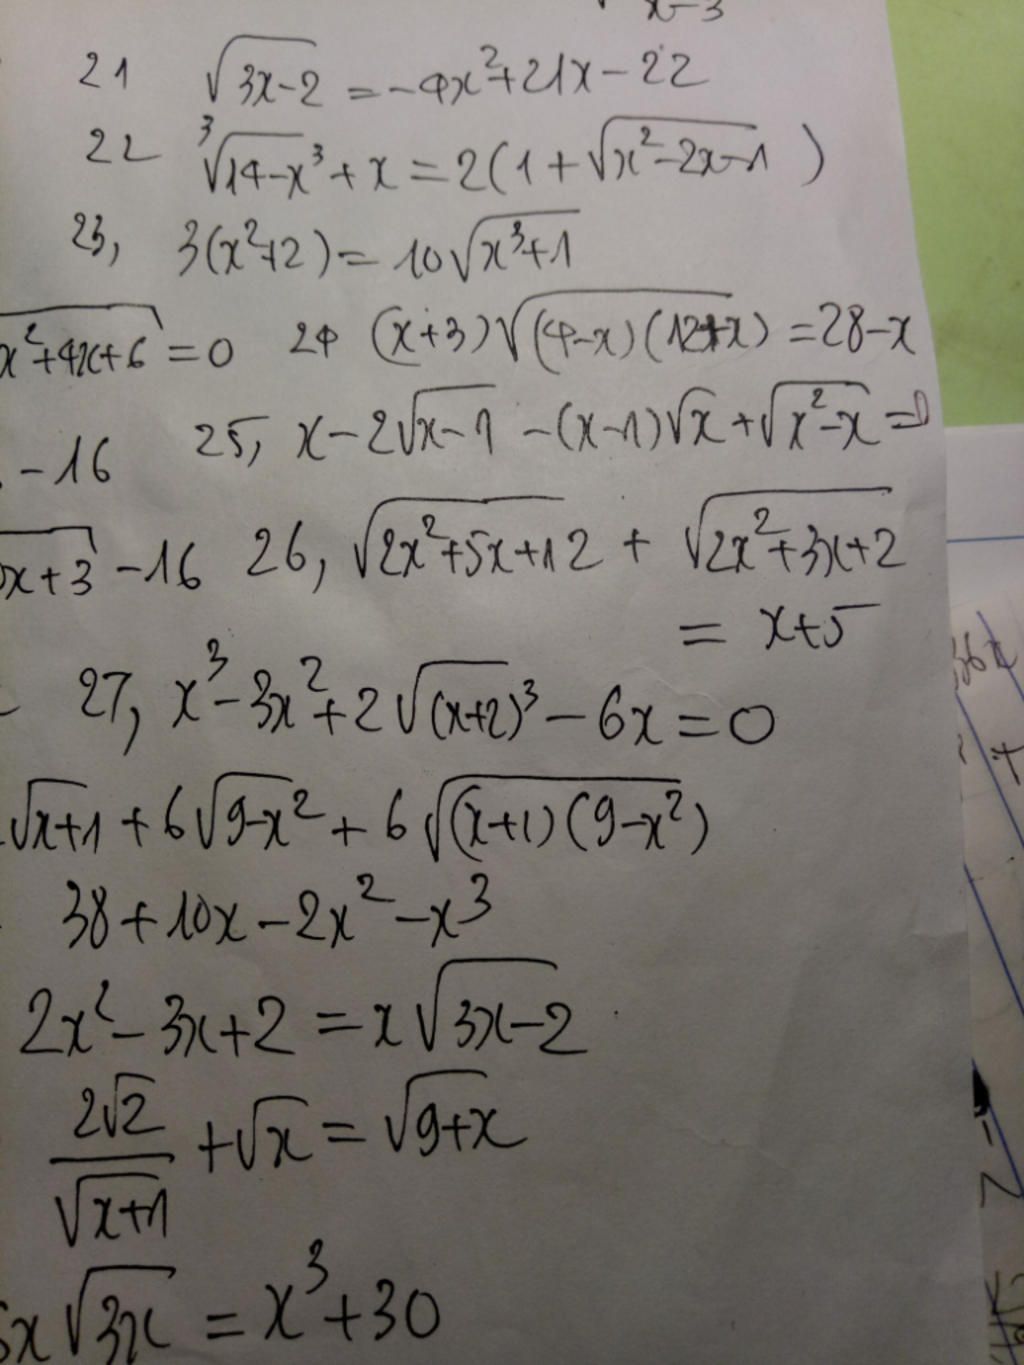 x-3
21 √(3x-2) = -4x²+21x-22
22 ³√(14-x³) + x = 2(1+√(x²-2x-1))
23, 3(x²+2) = 10√(x³+1)
x²+4x+6 = 0 24 (x+3)√((4-x)(12+x)) = 28-x
-16 25, x-2√(x-1) -(x-1)√x + √(x²-x) = 0
x+3 -16 26, √(2x²+5x+12) + √(2x²+3x+2)
= x+5
27, x³-3x²+2√((x+2)³) - 6x = 0
√(x+1) + 6√(9-x²) + 6√((x+1)(9-x²))
38+10x-2x²-x³
2x²-3x+2 = x√(3x-2)
2√2/√(x+1) + √x = √(9+x)
x√(3x) = x³+30